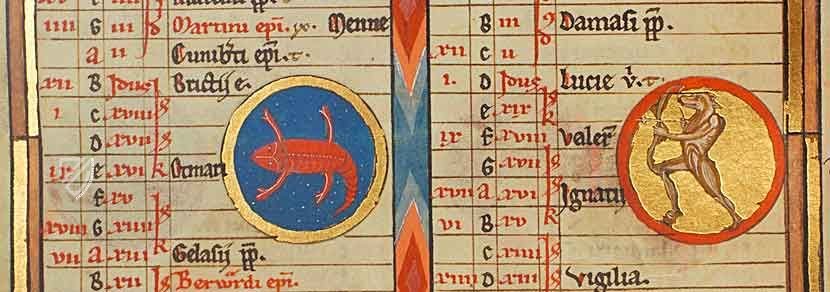 iiii G iii d Martini epi. Menne
a ii Cunib'ti epi. t.
xii B Idus Brictij e.
i c xviii k
D xvii k
ix e xvi k Otmari
f xv k
xviii G xiiii k
vii a xiii k Gelasij pp.
B xii Berwardi epi.
B iii d Damasi pp.
xii c ii
i. D Idus Lucie v. t.
e xix k
ix f xviii k valer
G xvii k
xvii a xvi k Ignatij
vi B xv k
c xiiii k
xiiii D xiii k vigilia.